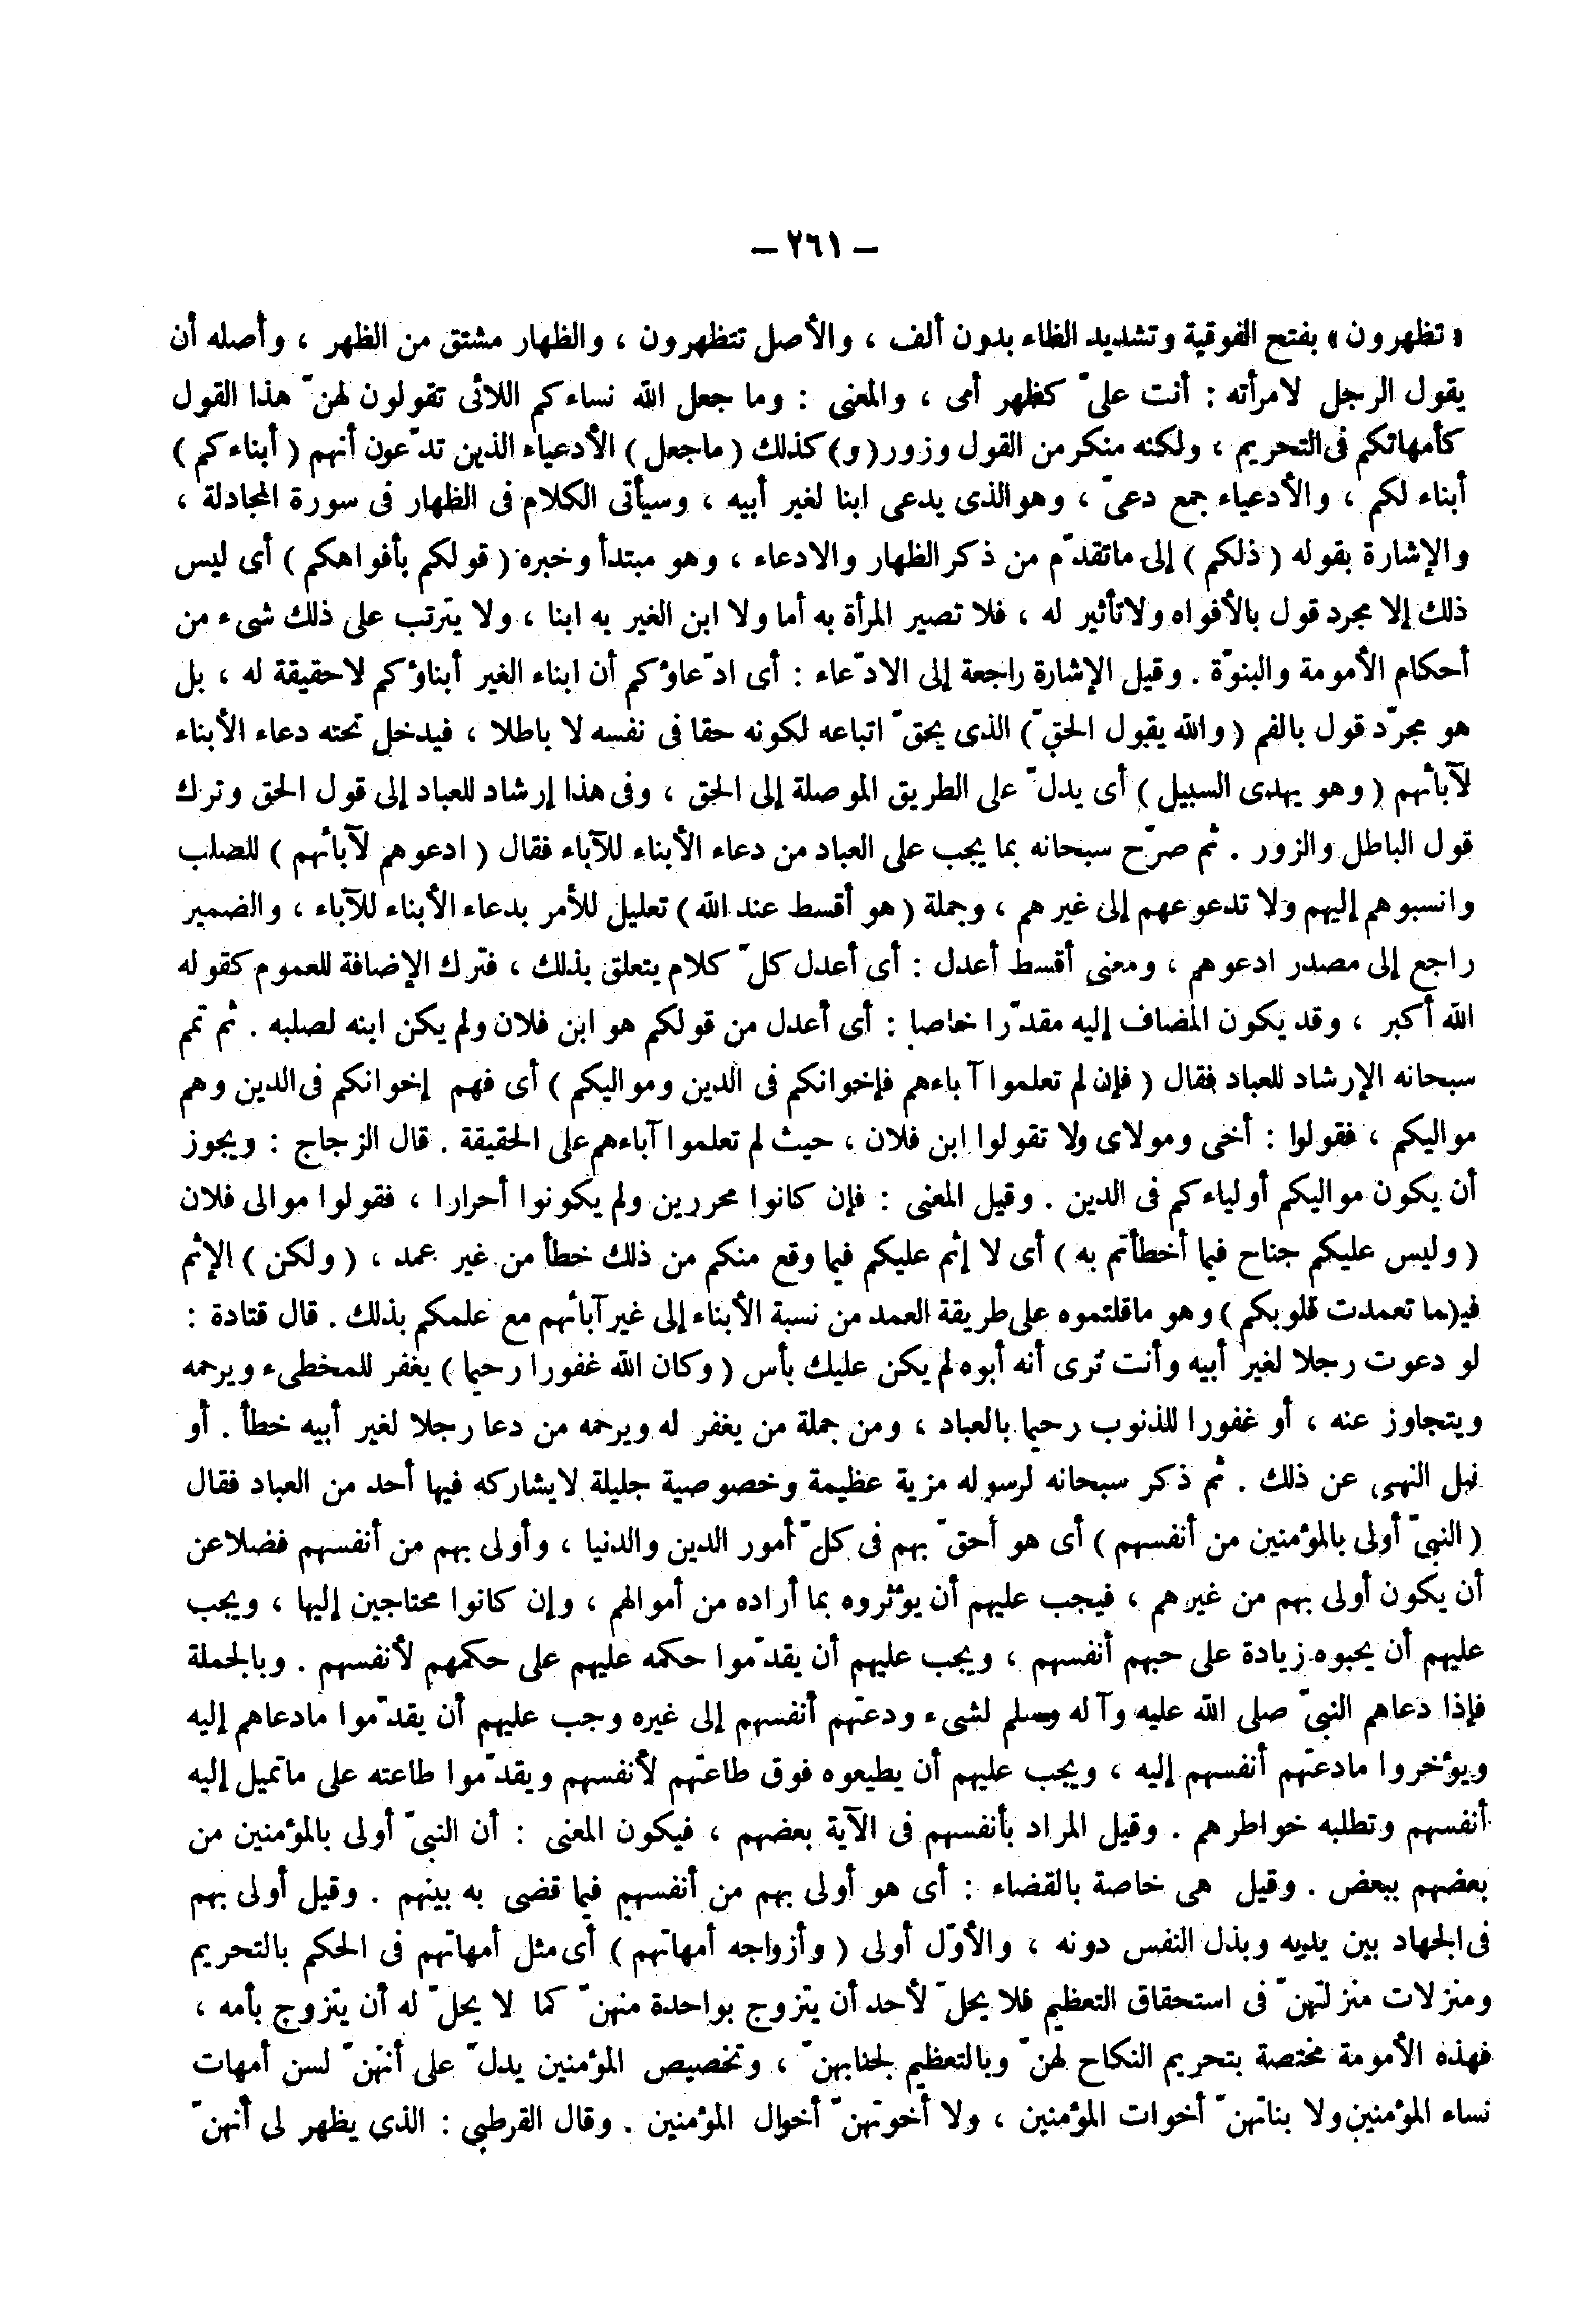 – ٢٦١ –
« تظهرون » بفتح الفوقية وتشديد الظاء بدون ألف ، والأصل تتظهرون ، والظهار مشتق من الظهر ، وأصله أن
يقول الرجل لامرأته : أنت علىّ كظهر أمى ، والمعنى : وما جعل الله نساءكم اللائى تقولون لهنّ هذا القول
كأمهاتكم فى التحريم ، ولكنه منكر من القول وزور (و) كذلك ( ماجعل ) الأدعياء الذين تدّعون أنهم ( أبناءكم )
أبناء لكم ، والأدعياء جمع دعىّ ، وهو الذى يدعى ابنا لغير أبيه ، وسيأتى الكلام فى الظهار فى سورة المجادلة ،
والإشارة بقوله ( ذلكم ) إلى ماتقدّم من ذكر الظهار والادعاء ، وهو مبتدأ وخبره ( قولكم بأفواهكم ) أى ليس
ذلك إلا مجرد قول بالأفواه ولا تأثير له ، فلا تصير المرأة به أما ولا ابن الغير به ابنا ، ولا يترتب على ذلك شىء من
أحكام الأمومة والبنوّة . وقيل الإشارة راجعة إلى الادّعاء : أى ادّعاؤكم أن ابناء الغير أبناؤكم لاحقيقة له ، بل
هو مجرّد قول بالفم ( والله يقول الحقّ ) الذى يحقّ اتباعه لكونه حقا فى نفسه لا باطلا ، فيدخل تحته دعاء الأبناء
لآبائهم ( وهو يهدى السبيل ) أى يدلّ على الطريق الموصلة إلى الحق ، وفى هذا إرشاد للعباد إلى قول الحق وترك
قول الباطل والزور . ثم صرّح سبحانه بما يجب على العباد من دعاء الأبناء للآباء فقال ( ادعوهم لآبائهم ) للصلب
وانسبوهم إليهم ولا تدعوهم إلى غيرهم ، وجملة ( هو أقسط عند الله ) تعليل للأمر بدعاء الأبناء للآباء ، والضمير
راجع إلى مصدر ادعوهم ، ومعنى أقسط أعدل : أى أعدل كلّ كلام يتعلق بذلك ، فترك الإضافة للعموم كقوله
الله أكبر ، وقد يكون المضاف إليه مقدّرا خاصا : أى أعدل من قولكم هو ابن فلان ولم يكن ابنه لصلبه . ثم تمم
سبحانه الإرشاد للعباد فقال ( فإن لم تعلموا آباءهم فإخوانكم فى الدين ومواليكم ) أى فهم إخوانكم فى الدين وهم
مواليكم ، فقولوا : أخى ومولاى ولا تقولوا ابن فلان ، حيث لم تعلموا آباءهم على الحقيقة . قال الزجاج : ويجوز
أن يكون مواليكم أولياءكم فى الدين . وقيل المعنى : فإن كانوا محررين ولم يكونوا أحرارا ، فقولوا موالى فلان
( وليس عليكم جناح فيما أخطأتم به ) أى لا إثم عليكم فيما وقع منكم من ذلك خطأ من غير عمد ، ( ولكن ) الإثم
فى (ما تعمدت قلوبكم ) وهو ماقلتموه على طريقة العمد من نسبة الأبناء إلى غير آبائهم مع علمكم بذلك . قال قتادة :
لو دعوت رجلا لغير أبيه وأنت ترى أنه أبوه لم يكن عليك بأس ( وكان الله غفورا رحيما ) يغفر للمخطىء ويرحمه
ويتجاوز عنه ، أو غفورا للذنوب رحيما بالعباد ، ومن جملة من يغفر له ويرحمه من دعا رجلا لغير أبيه خطأ . أو
قبل النهى عن ذلك . ثم ذكر سبحانه لرسوله مزية عظيمة وخصوصية جليلة لايشاركه فيها أحد من العباد فقال
( النبىّ أولى بالمؤمنين من أنفسهم ) أى هو أحقّ بهم فى كلّ أمور الدين والدنيا ، وأولى بهم من أنفسهم فضلا عن
أن يكون أولى بهم من غيرهم ، فيجب عليهم أن يؤثروه بما أراده من أموالهم ، وإن كانوا محتاجين إليها ، ويجب
عليهم أن يحبوه زيادة على حبهم أنفسهم ، ويجب عليهم أن يقدّموا حكمه عليهم على حكمهم لأنفسهم . وبالجملة
فإذا دعاهم النبىّ صلى الله عليه وآله وسلم لشىء ودعتهم أنفسهم إلى غيره وجب عليهم أن يقدّموا مادعاهم إليه
ويؤخروا مادعتهم أنفسهم إليه ، ويجب عليهم أن يطيعوه فوق طاعتهم لأنفسهم ويقدّموا طاعته على ماتميل إليه
أنفسهم وتطلبه خواطرهم . وقيل المراد بأنفسهم فى الآية بعضهم ، فيكون المعنى : أن النبىّ أولى بالمؤمنين من
بعضهم ببعض . وقيل هى خاصة بالقضاء : أى هو أولى بهم من أنفسهم فيما قضى به بينهم . وقيل أولى بهم
فى الجهاد بين يديه وبذل النفس دونه ، والأوّل أولى ( وأزواجه أمهاتهم ) أى مثل أمهاتهم فى الحكم بالتحريم
ومنزلات منزلتهنّ فى استحقاق التعظيم فلا يحلّ لأحد أن يتزوج بواحدة منهنّ كما لا يحلّ له أن يتزوج بأمه ،
فهذه الأمومة مختصة بتحريم النكاح لهنّ وبالتعظيم لجنابهنّ ، وتخصيص المؤمنين يدلّ على أنهنّ لسن أمهات
نساء المؤمنين ولا بناتهنّ أخوات المؤمنين ، ولا أخوتهنّ أخوال المؤمنين . وقال القرطبى : الذى يظهر لى أنهنّ